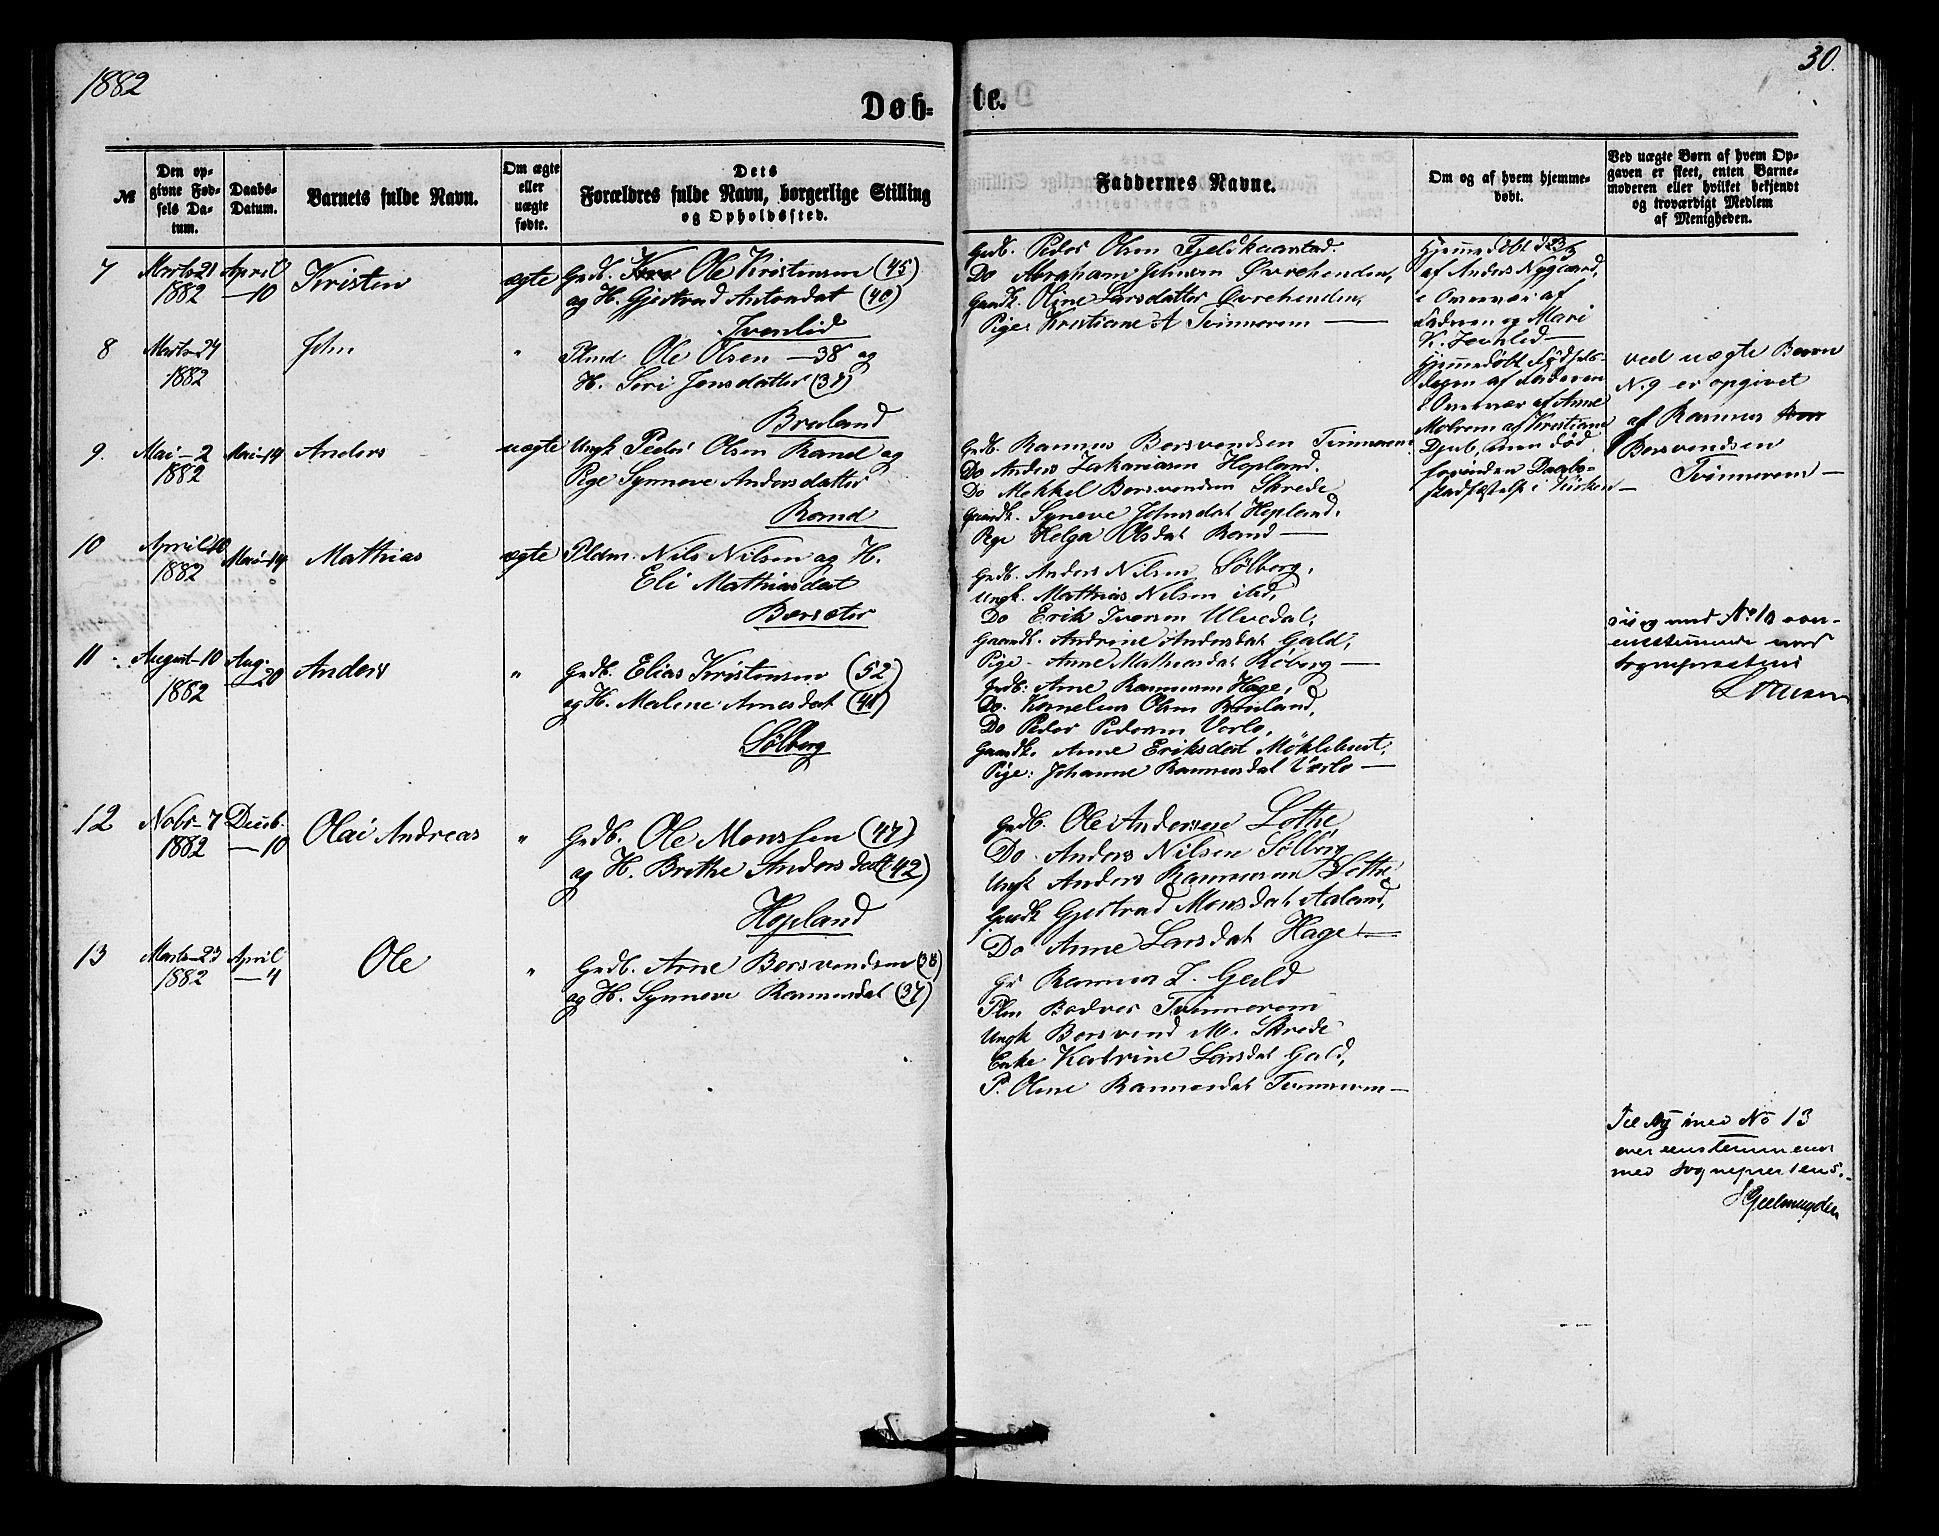 1882
30.
Døb-
te.
№
Den op-
givne Fød-
sels Da-
tum.
Daabs-
Datum.
Barnets fulde Navn.
Om ægte
eller
uægte
fødte.
Dets
Forældres fulde Navn, borgerlige Stilling
og Opholdssted.
Faddernes Navne.
Om og af hvem hjemme-
døbt.
Ved uægte Børn af hvem Op-
gaven er skeet, enten Barne-
moderen eller hvilket bekjendt
og troværdigt Medlem
af Menigheden.
7
Marts 21
1882
April
—10
Kristen
ægte
Grdb. Ole Kristensen (45)
og H. Gjertrud Antondat (40)
Grdb. Peder Olsen
Do Abraham Johnsen Øvrehenden,
Gaardk. Oline Larsdatter Øvrehenden,
Pige: Kristiane A Tvinnerem —
Hjemmedøbt d 23/3
af Anders Nygaard,
i Overvær af
Faderen og Mari
8
Marts 24
1882
John
"
Plmd. Ole Olsen — 38 og
H. Seri Jensdatter (37)
Bruland
Hjemmedøbt Fødsels-
dagen af Faderen
i Overvær af Anne
Moderen af Kristiane
Djub, men død
forinden Daabs-
stadfæstelse i Kirken —
ved uægte Barn
N. 9 er opgivet
af Rasmus
Børsvendsen
Tvinnerem —
9.
Mai — 2
1882
Mai 14
Anders
uægte
Ungk Peder Olsen Rand og
Pige Synneve Andersdatter
Rand
Grdb. Rasmus Børsvendsen Tvinnerem
Do Anders Zakariasen Hopland.
Do Mekkel Børsvendsen Skrede
Gaardk. Syneve Johnsdat Hopland,
Pige Helga Olsdat Rand —
10
April 10
1882
Mai 14
Mathias
ægte
Pldm. Nils Nilsen og H.
Eli Mathiasdat
Børsæter
Grdb. Anders Nilsen Sølberg,
Ungk. Mathias Nilsen ibd,
Do Erik Iversen Ulvedal,
Gaardk. Andrine Andersdat Gald,
Pige - Anne Mathiasdat Røberg —
og med No 10 over-
ensstemmende med
Sogneprestens
11
August 10
1882
Aug.
—20
Anders
"
Grdb. Elias Kristensen (52)
og H. Malene Arnesdat (41)
Sølberg
Grdb: Arne Rasmussen Hage,
Do. Kornelius Olsen Bruland,
Do Peder Pedersen Verlo,
Gaardk. Anne Eriksdat Møklebust,
Pige: Johanne Rasmusdat Verlo —
12
Nobr — 7
1882
Decmb.
—10
Olai Andreas
"
Grdb. Ole Monssen (47)
og H. Brithe Andersdatt (42)
Hopland
Grdb. Ole Andersen Lothe
Do Anders Nilsen Sølberg
Ungk Anders Rasmussen Lothe
Grdk Gjertrud Monsdat Aaland,
Do Anne Larsdat Hage —
13
Marts 23
1882
April
—4
Ole
"
Grdb. Arne Børsvendsen (38)
og H. Synneve Rasmusdat (37)
Gr Rasmus J. Gald
Plm Bodvar Tvinnerem
Ungk Børsvend M. Skrede
Enke Katrine Larsdat Gald,
P. Oline Rasmusdat Tvinnerem —
Til og med No 13
overeensstemmende
med Sogneprestens.
Geelmuyden